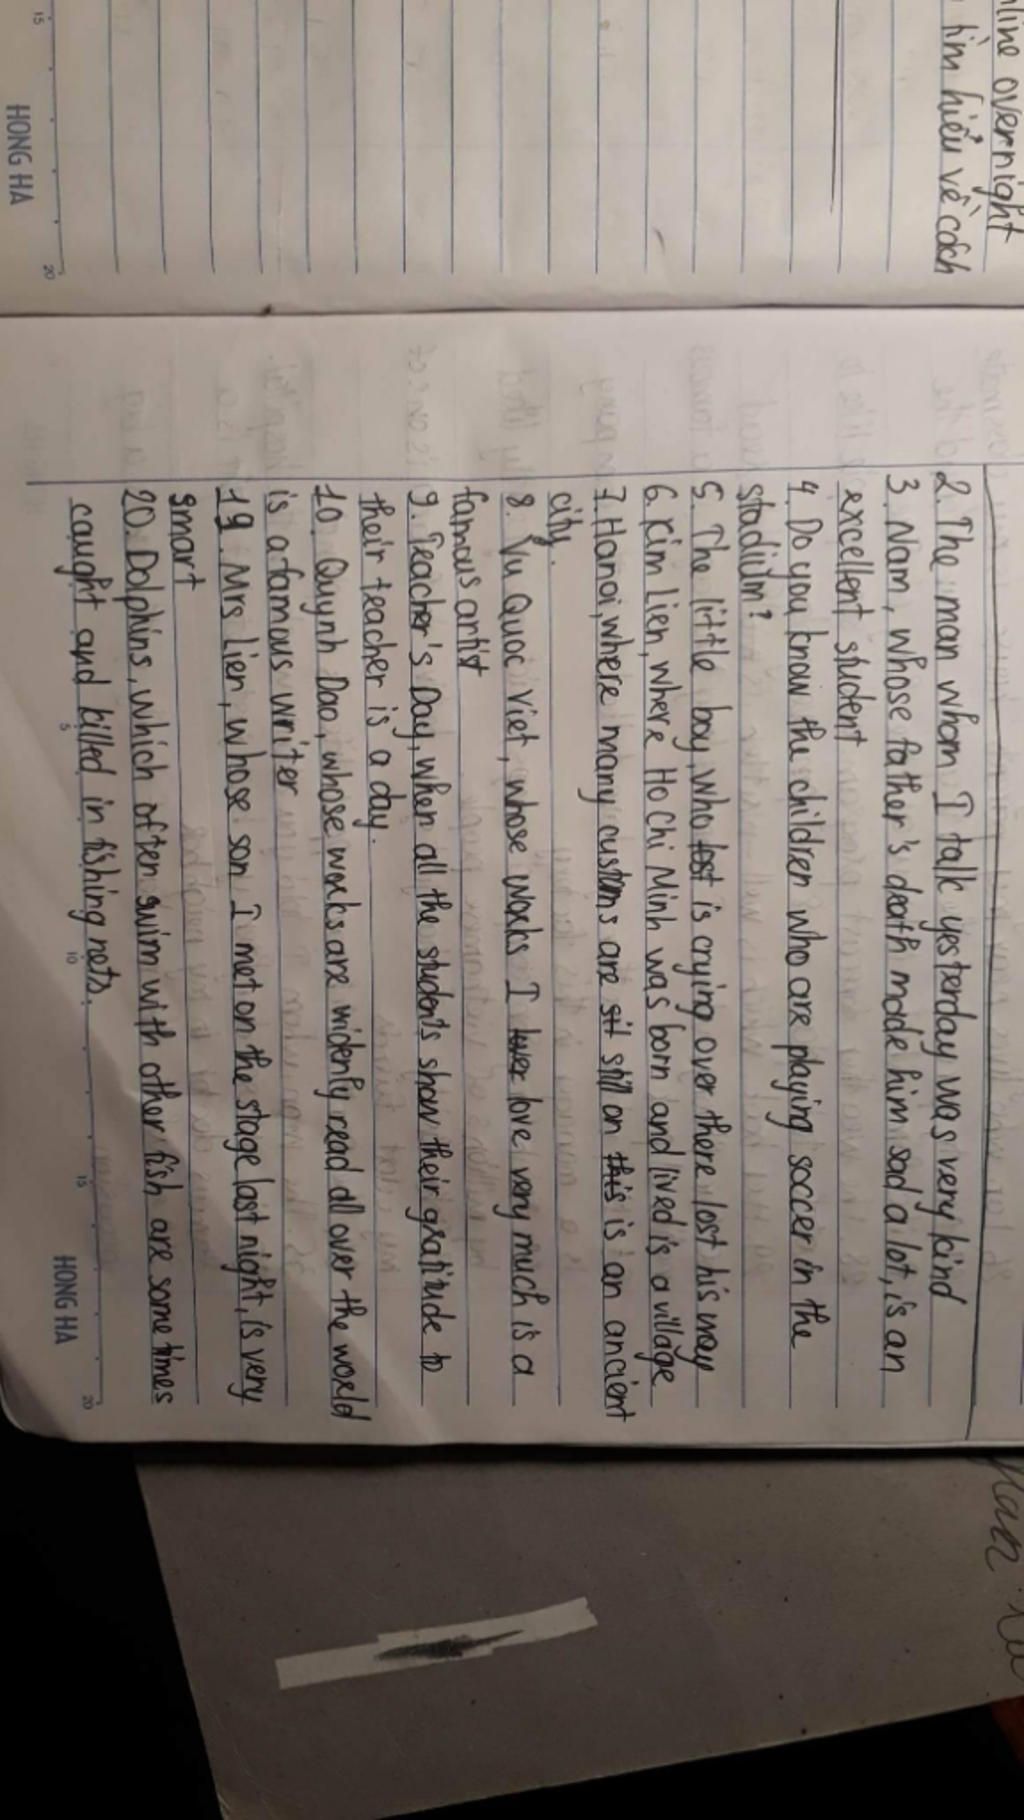 nline overnight
tìm hiểu về cách
15
20
HONG HA
2. The man whom I talk yesterday was very kind
3. Nam, whose father's death made him sad a lot, is an
excellent student
4. Do you know the children who are playing soccer in the
stadium?
5. The little boy, who lost is crying over there lost his way
6. Kim Lien, where Ho Chi Minh was born and lived is a village
7. Hanoi, where many customs are sit still on this is an ancient
city.
8. Vu Quoc Viet, whose works I love very much is a
famous artist
9. Teacher's Day, when all the students show their gratitude to
their teacher is a day.
10. Quynh Dao, whose works are widenly read all over the world
is a famous writer
19. Mrs Lien, whose son I met on the stage last night, is very
smart
20. Dolphins, which often swim with other fish are some times
caught and killed in fishing nets.
5 10 15 20
HONG HA